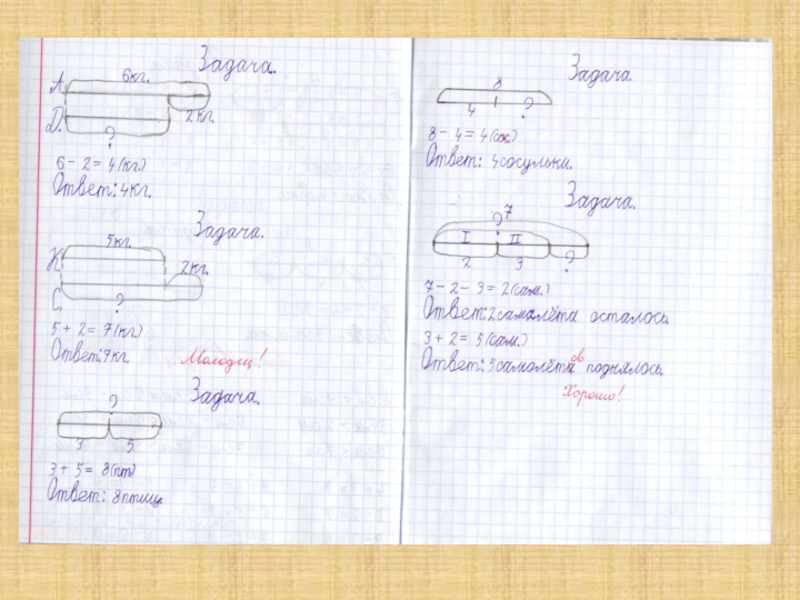 Задача.
6кг.
А.
2кг.
Д.
?
6 - 2 = 4(кг.)
Ответ: 4кг.
Задача.
5кг.
К.
2кг.
С.
?
5 + 2 = 7(кг.)
Ответ: 7кг.
Молодец!
Задача.
?
3 5
3 + 5 = 8(пт.)
Ответ: 8птиц.
Задача.
8
4 ?
8 - 4 = 4(сос.)
Ответ: 4сосульки.
Задача.
7
?
I II
2 3 ?
7 - 2 - 3 = 2(сам.)
Ответ: 2самолёта осталось.
3 + 2 = 5(сам.)
ов
Ответ: 5самолёта поднялось.
Хорошо!